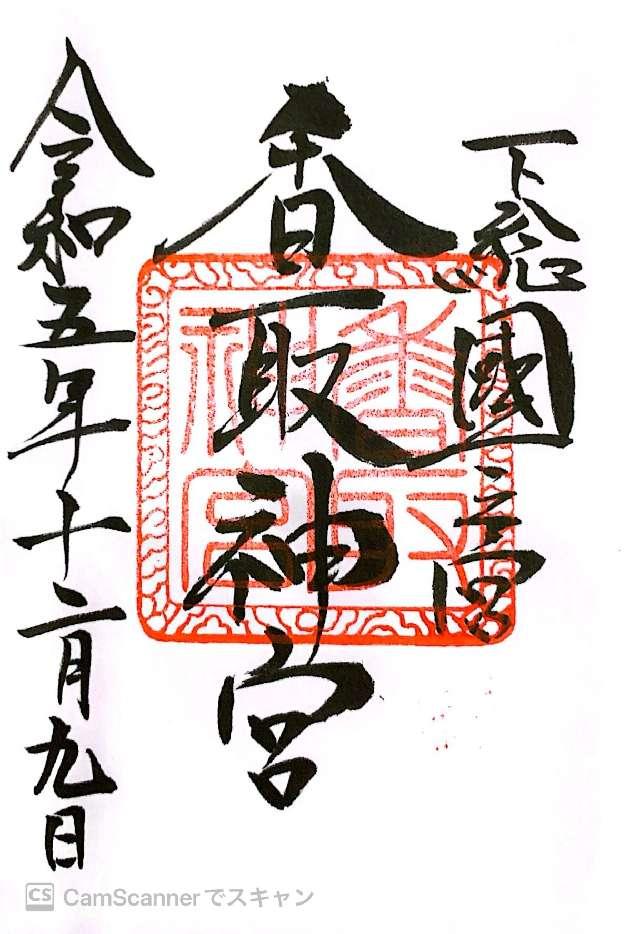 下総國一之宮
香取神宮
令和五年十二月九日
香取神宮
CS CamScannerでスキャン